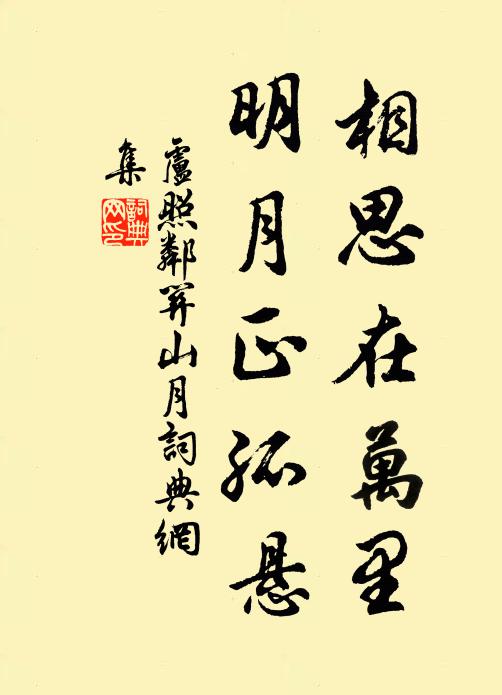 相思在萬里
明月正孤懸
盧照鄰關山月詞典網
集
詞典
网印